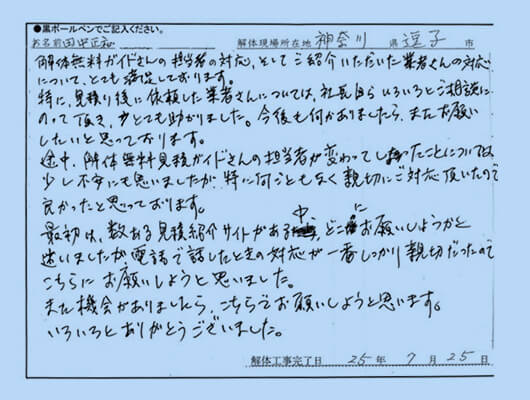 ●黒ボールペンでご記入ください。
お名前 田中正和 解体現場所在地 神奈川 県 逗子 市
解体無料ガイドさんの担当者の対応、そしてご紹介いただいた業者さんの対応
について、とても満足しております。
特に、見積り後に依頼した業者さんについては、社長自らいろいろとご相談に
のって頂き、少とても助かりました。今後も何かありましたら、またお願い
したいと思っております。
途中、解体無料見積ガイドさんの担当者が変わってしまったことについては
少し不安にも思いましたが、特に何ごともなく親切にご対応頂いたので
良かったと思っております。
最初は、数ある見積紹介サイトがある中、どこにお願いしようかと
迷いましたが、電話で話したときの対応が一番しっかり親切だったので
こちらにお願いしようと思いました。
また機会がありましたら、こちらでお願いしようと思います。
いろいろとありがとうございました。
解体工事完了日 25年 7月 25日